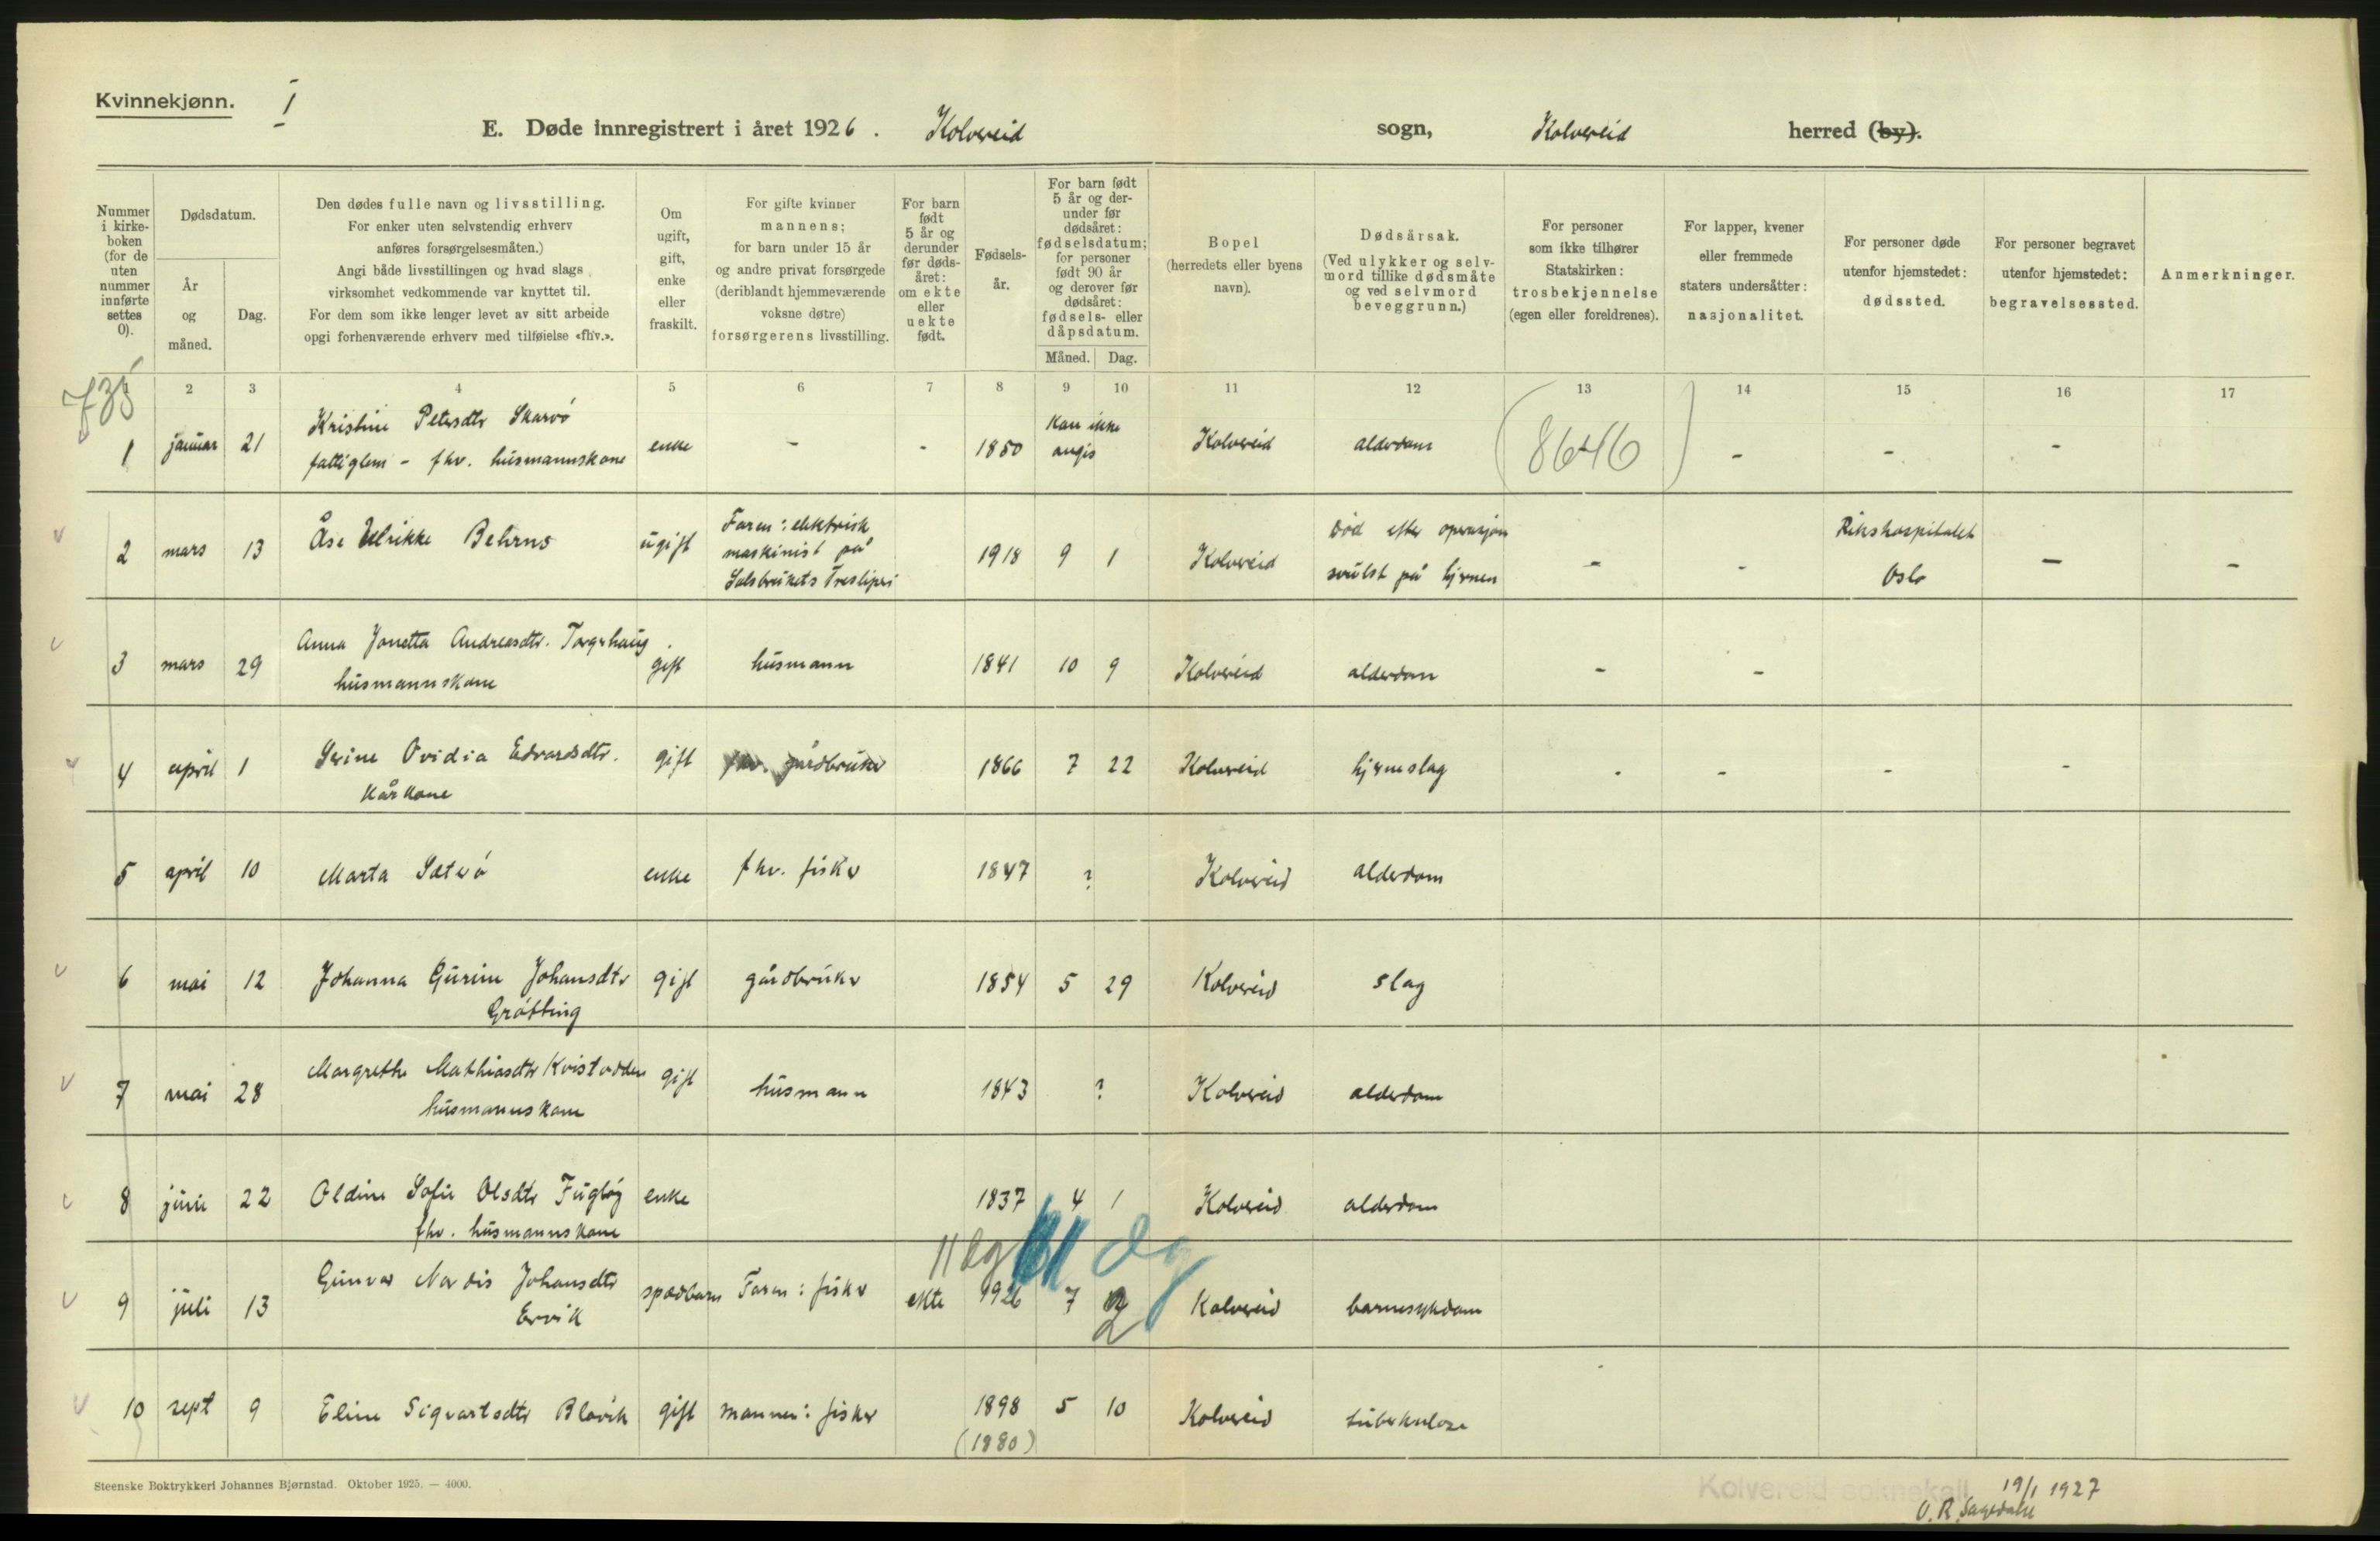 Kvinnekjønn. I
E. Døde innregistrert i året 1926. Kolvereid sogn, Kolvereid herred (by).
Nummer i kirke-boken (for de uten nummer innførte settes 0).
Dødsdatum.
År og måned.
Dag.
Den dødes fulle navn og livsstilling.
For enker uten selvstendig erhverv
anføres forsørgelsesmåten.)
Angi både livsstillingen og hvad slags
virksomhet vedkommende var knyttet til.
For dem som ikke lenger levet av sitt arbeide
opgi forhenværende erhverv med tilføielse «fhv.».
Om ugift, gift, enke eller fraskilt.
For gifte kvinner
mannens;
for barn under 15 år
og andre privat forsørgede
(deriblandt hjemmeværende
voksne døtre)
forsørgerens livsstilling.
For barn født 5 år og derunder før døds-året: om ekte eller uekte født.
Fødsels-år.
For barn født 5 år og der-under før dødsåret: fødselsdatum; for personer født 90 år og derover før dødsåret: fødsels- eller dåpsdatum.
Måned. Dag.
Bopel
(herredets eller byens
navn).
Dødsårsak.
(Ved ulykker og selv-
mord tillike dødsmåte
og ved selvmord
beveggrunn.)
For personer
som ikke tilhører
Statskirken:
trosbekjennelse
(egen eller foreldrenes).
For lapper, kvener
eller fremmede
staters undersåtter:
nasjonalitet.
For personer døde
utenfor hjemstedet:
dødssted.
For personer begravet
utenfor hjemstedet:
begravelsessted.
Anmerkninger.
1 2 3 4 5 6 7 8 9 10 11 12 13 14 15 16 17
735
1 januar 21 Kristine Petersdtr Skarvö enke - - 1850 Kan ikke angis Kolvereid alderdom (8646) - - -
fattiglem - fhv. husmannskone
2 mars 13 Åse Ulrikke Behrns ugift Faren: elektrisk maskinist på Salsbrukets Tresliperi 1918 9 1 Kolvereid död efter operasjon svulst på hjernen - - Rikshospitalet Oslo - -
3 mars 29 Anna Jonetta Andreasdtr. Torgerhaug gift husmann 1841 10 9 Kolvereid alderdom - -
husmannskone
4 april 1 Serine Ovidia Edvardsdtr. gift fhv. gårdbruker 1866 7 22 Kolvereid hjerneslag - - - -
kårkone
5 april 10 Marta Sæterö enke fhv. fisker 1847 ? Kolvereid alderdom
6 mai 12 Johanna Gurine Johansdtr gift gårdbruker 1854 5 29 Kolvereid slag
Grötting
7 mai 28 Margrethe Mathiasdtr Kvistodden gift husmann 1843 ? Kolvereid alderdom
husmannskone
8 juni 22 Oldine Sofie Olsdtr Fugløy enke 1837 4 1 Kolvereid alderdom
fhv. husmannskone
11 dg 11 dg
9 juli 13 Gunvor Nordis Johansdtr spædbarn Faren: fisker ekte 1926 7 2 Kolvereid barnesykdom
Ervik
10 sept 9 Eline Sigvartsdtr Blåvik gift mannen: fisker 1898 5 10 Kolvereid tuberkulose
(1880)
Steenske Boktrykkeri Johannes Bjørnstad. Oktober 1925. — 4000.
Kolvereid soknekall 19/1 1927